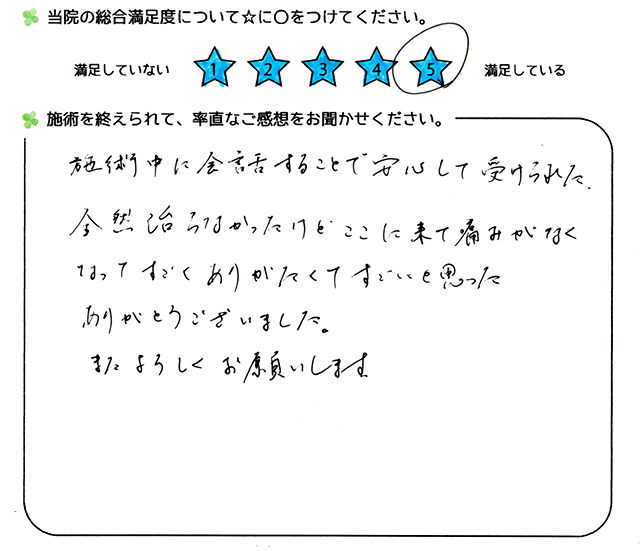 当院の総合満足度について☆に〇をつけてください。
満足していない 1 2 3 4 5 満足している
施術を終えられて、率直なご感想をお聞かせください。
施術中に会話することで安心して受けられた。
全然治らなかったけどここに来て痛みがなく
なってすごくありがたくてすごいと思った
ありがとうございました。
またよろしくお願いします